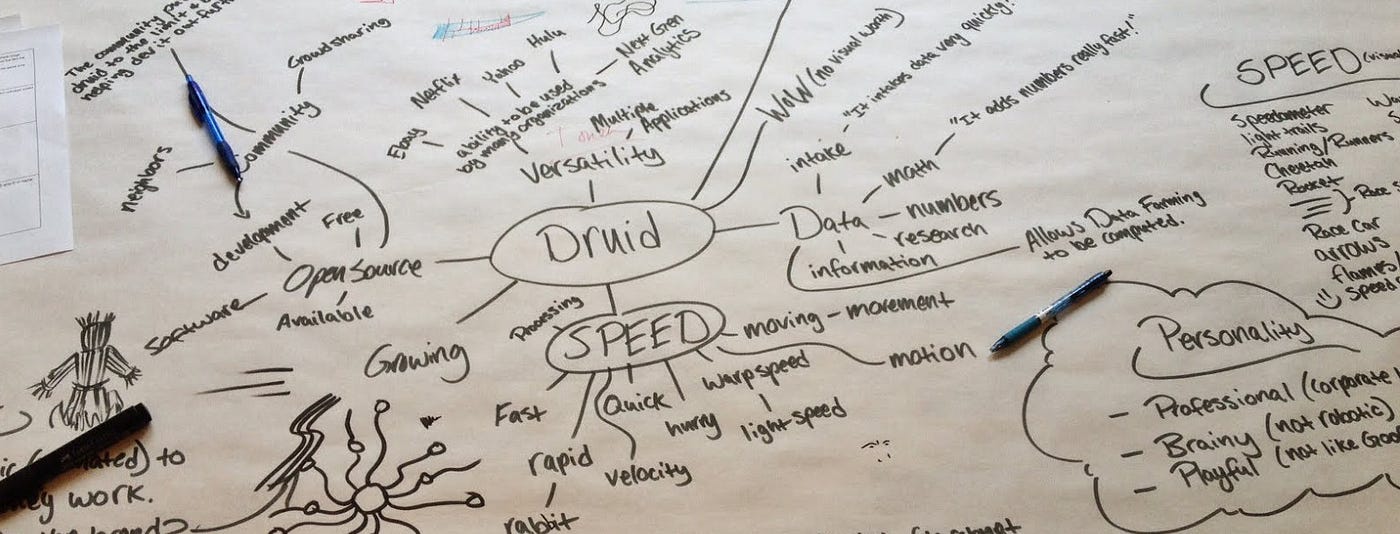 The community
druid to the limit
helping dev it out
Crowdsharing
Community
Neighbors
development
Free
Open Source
Software
Available
Ebay
Netflix
Yahoo
Hulu
Next Gen
Analytics
ability to be used
by many organizations
Multiple
Applications
Versatility
WOW (no visual worth)
Druid
intake
"It intakes data very quickly!
math
"It adds numbers really fast!!"
Data
numbers
research
information
Allows Data Farming
to be computed.
Growing
Processing
SPEED
moving - movement
motion
warp speed
light speed
hurry
Quick
velocity
Fast
rapid
rabbit
SPEED
Speedometer
light trails
Running/Runners
Cheetah
Rocket
Race Car
arrows
flames/
Speed
Personality
- Professional (corporate
- Brainy (not robotic)
- Playful (not like
to
work.